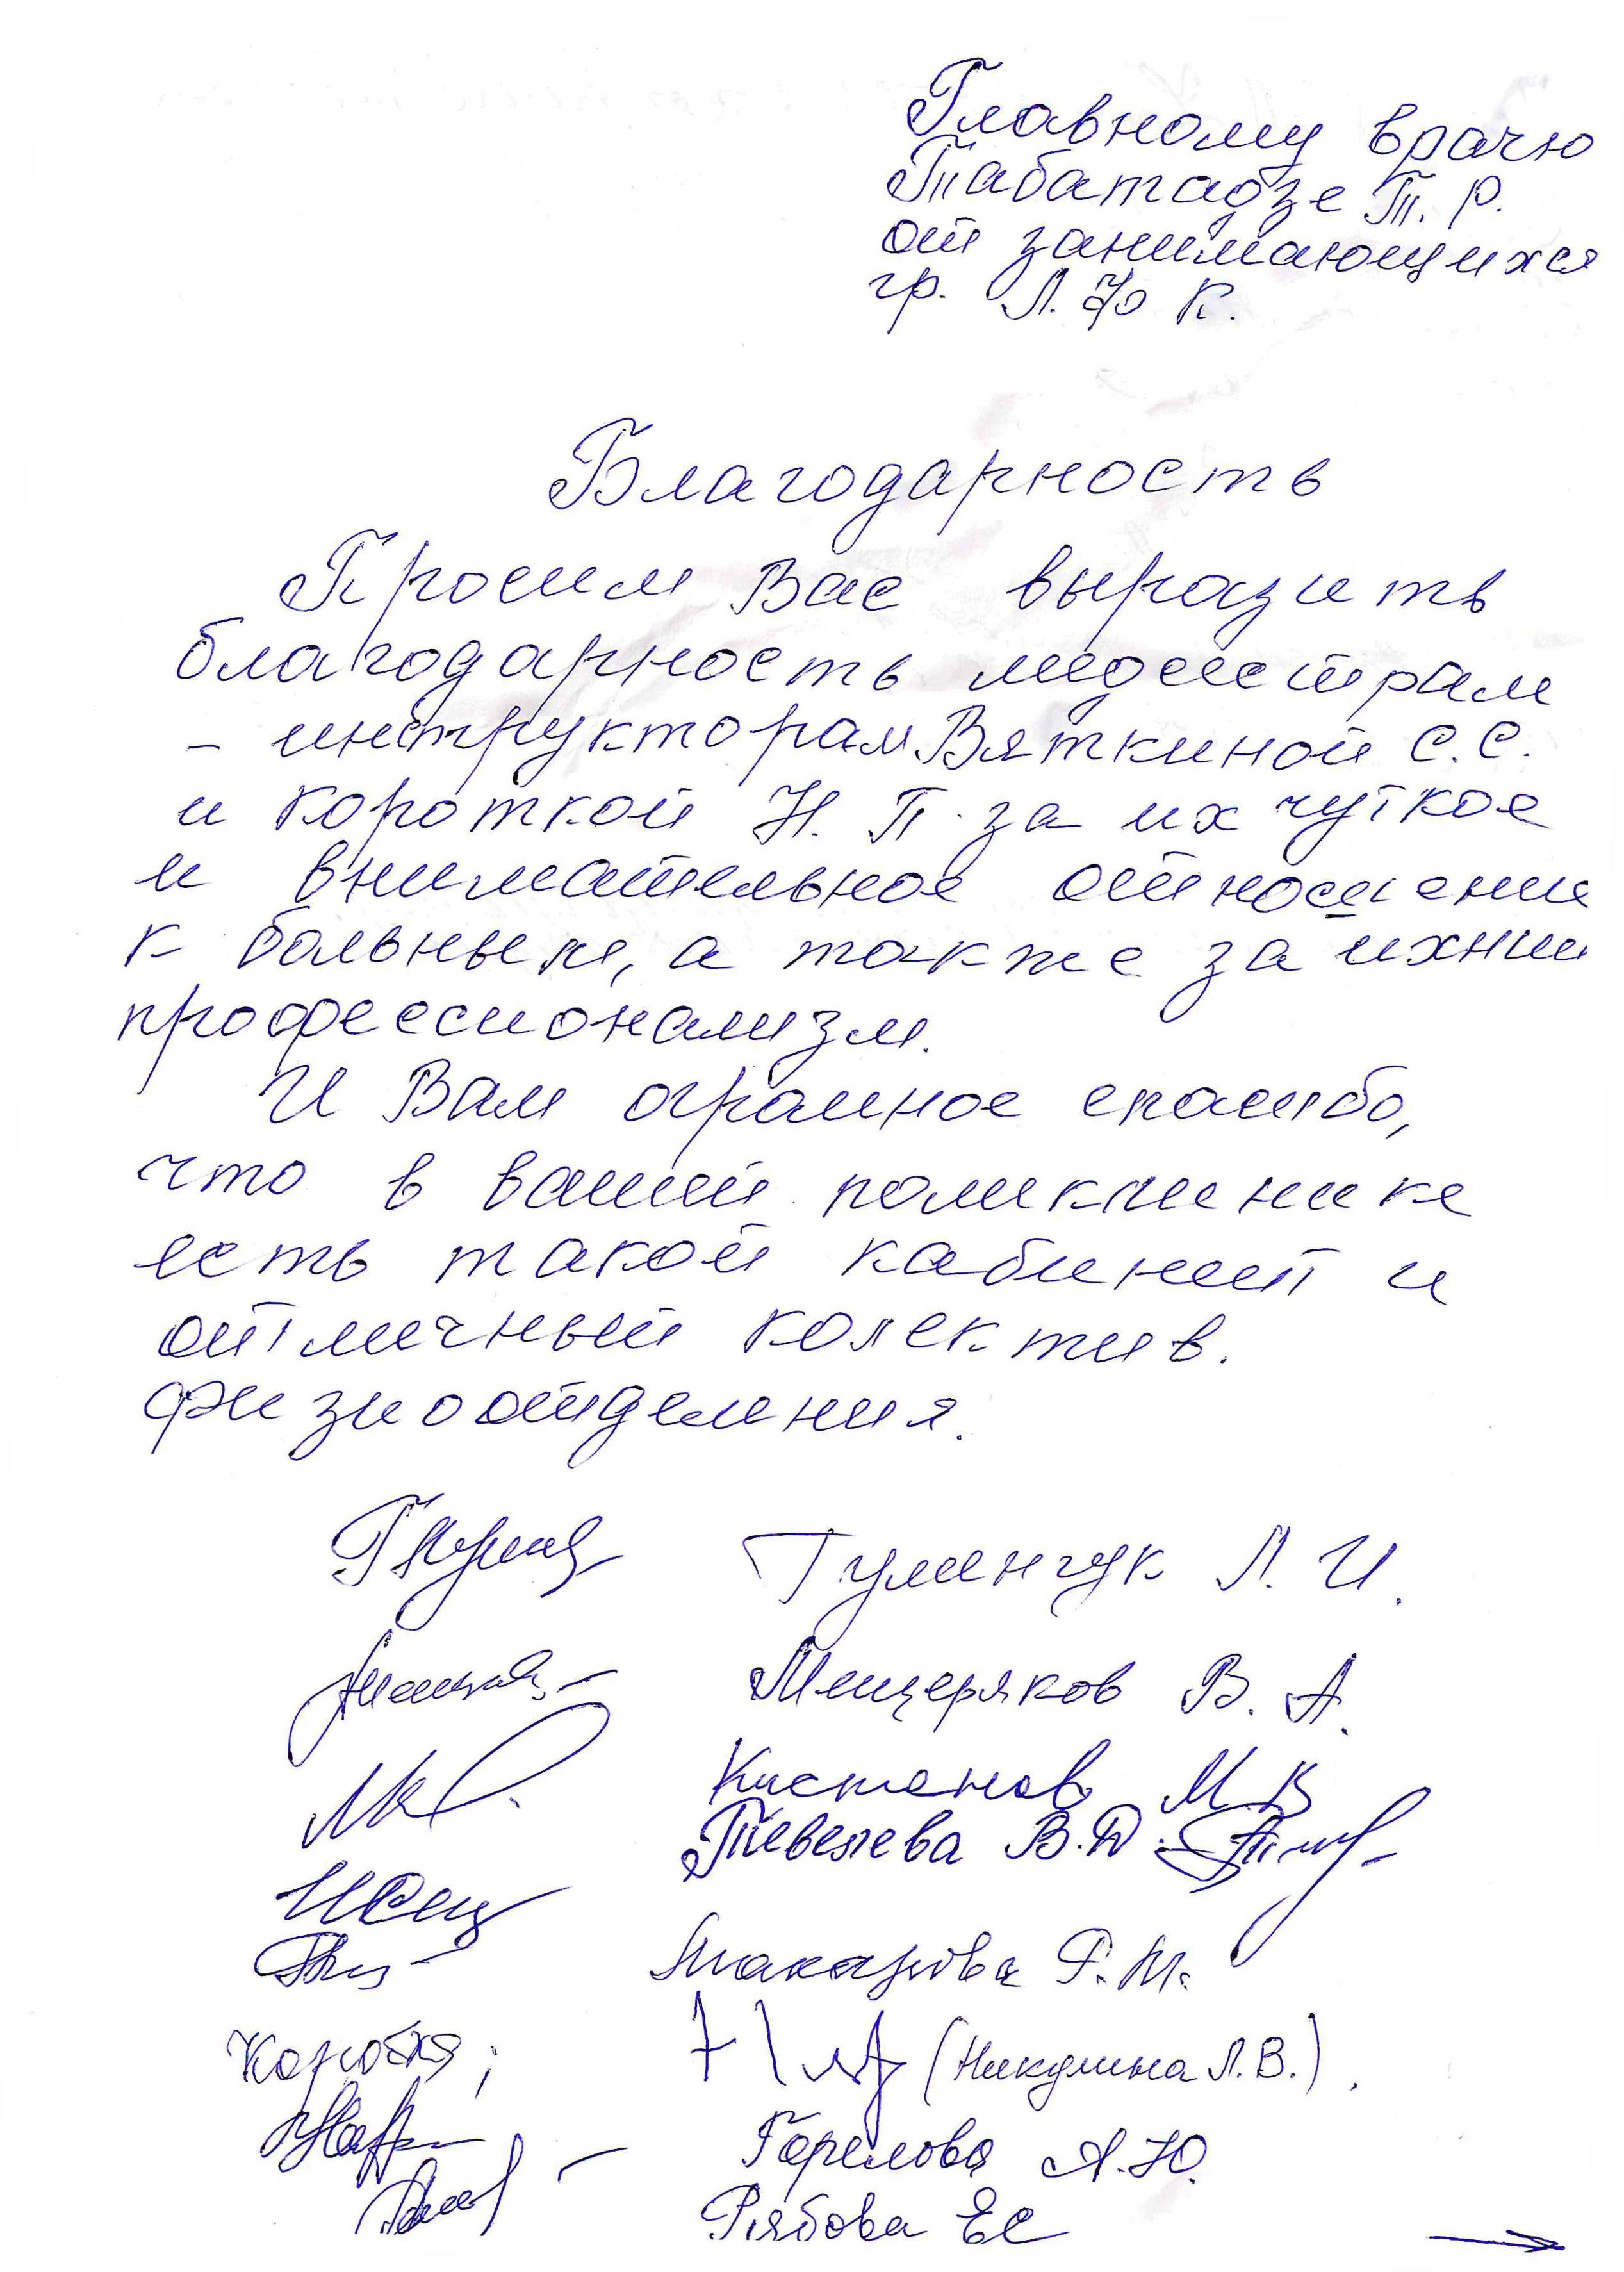 Главному врачю
Табатадзе Т. Р.
от занимающихся
гр. Л.Ф К.
Благодарность
Просим Вас выразить
благодарность медсестрам
- инструкторам Вяткиной С.С.
и Короткой Н. П. за их чуткое
и внимательное отношение
к больным, а также за ихний
профессионализм.
И Вам огромное спасибо,
что в вашей поликлинике
есть такой кабинет и
отличный колектив.
физиоотделения.
Гуменчук Л. И.
Мещеряков В. А.
Кистенов М В
Тевелева В.Д.
Макарова Р. М.
(Никулина Л.В.).
Горелова А.Ю.
Рябова ЕС